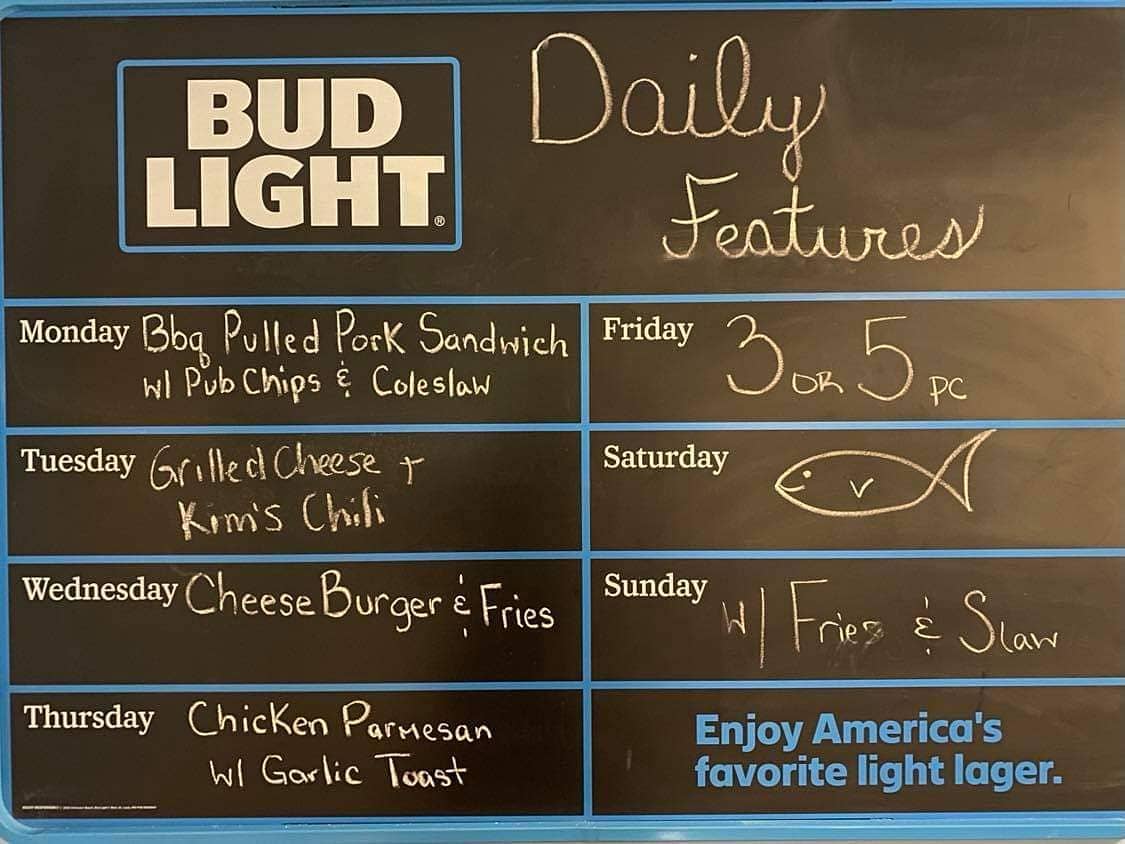 BUD
LIGHT®
Daily
Features
Monday Bbq Pulled Pork Sandwich
w/ Pub Chips & Coleslaw
Tuesday Grilled Cheese +
Kim's Chili
Wednesday Cheese Burger & Fries
Thursday Chicken Parmesan
w/ Garlic Toast
Friday 3 OR 5 PC
Saturday
Sunday w/ Fries & Slaw
Enjoy America's
favorite light lager.